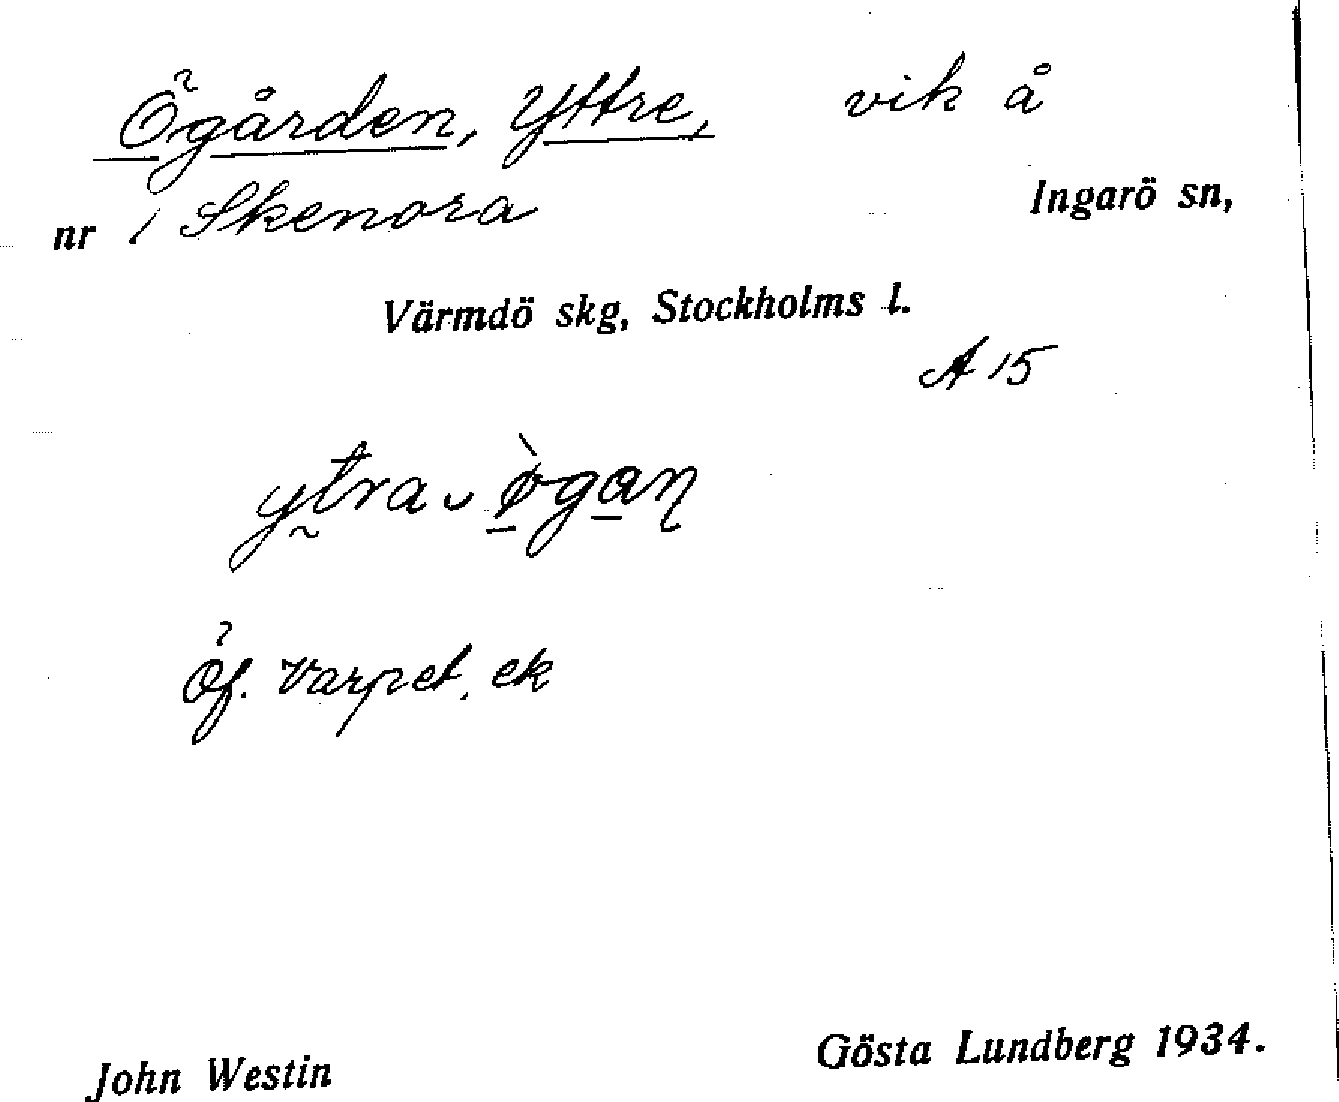 Ögården, Yttre, vik å
nr 1 Skenora Ingarö sn,
Värmdö skg, Stockholms l.
A 15
ytra ᴗ ø̀gaꞑ
Öf. Varpet, ek
John Westin Gösta Lundberg 1934.